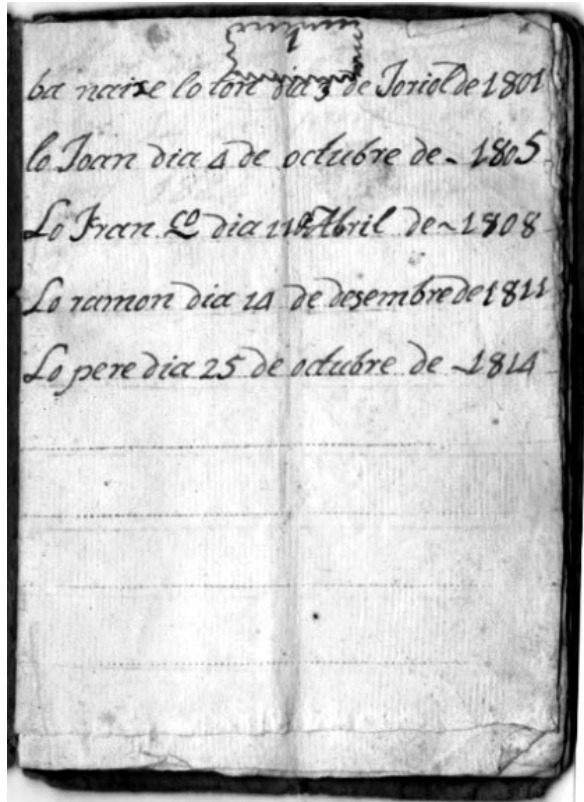 1
ba naixe lo ton dia 3 de Joriol de 1801
lo Joan dia 4 de octubre de ~ 1805
Lo Fran co dia 11 de Abril de ~ 1808
Lo ramon dia 14 de desembre de 1811
Lo pere dia 25 de octubre de ~ 1814